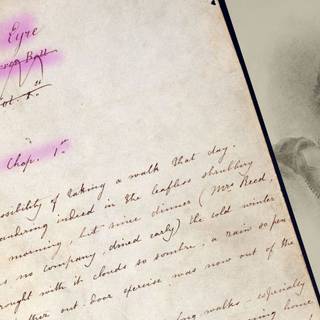 Eyre
Vol. 1.st
Chap. 1.st
ossibility of taking a walk that day.
andering indeed in the leafless shrubbery
morning, but since dinner (Mrs Reed,
s no company, dined early) the cold winter
rought with it clouds so sombre, a rain so pen
ther out-door exercise was now out of the
long walks, especially
ming home